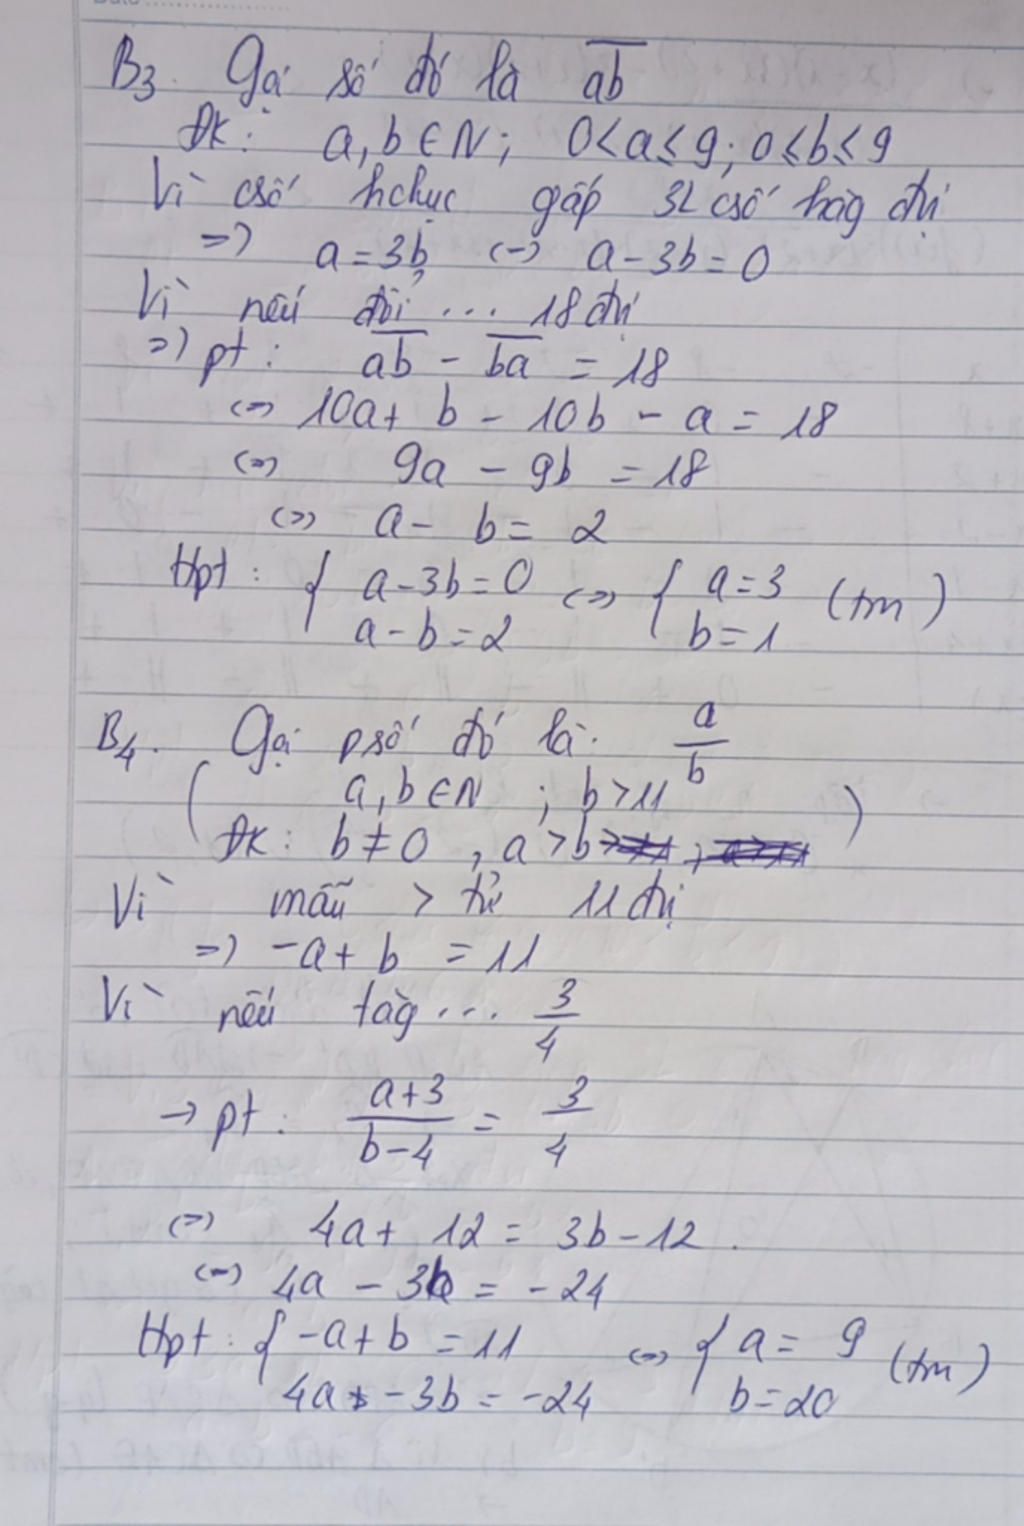 B3. Gọi số đó là ab
ĐK: a, b ∈ N; 0 < a ≤ 9; 0 ≤ b ≤ 9
Vì csố hchục gấp 3L csố hàg đvị
=> a = 3b <=> a - 3b = 0
Vì nếu đổi ... 18 đvị
=> pt: ab - ba = 18
<=> 10a + b - 10b - a = 18
<=> 9a - 9b = 18
<=> a - b = 2
Hpt: { a - 3b = 0 <=> { a = 3 (tm)
a - b = 2 b = 1
B4. Gọi psố đó là: a/b
( a, b ∈ N ; b > 11 )
ĐK: b ≠ 0, a > b
Vì mẫu > tử 11 đvị
=> -a + b = 11
Vì nếu tăg ... 3/4
-> pt: (a+3)/(b-4) = 3/4
<=> 4a + 12 = 3b - 12.
<=> 4a - 3b = -24
Hpt: { -a + b = 11 <=> { a = 9 (tm)
4a - 3b = -24 b = 20